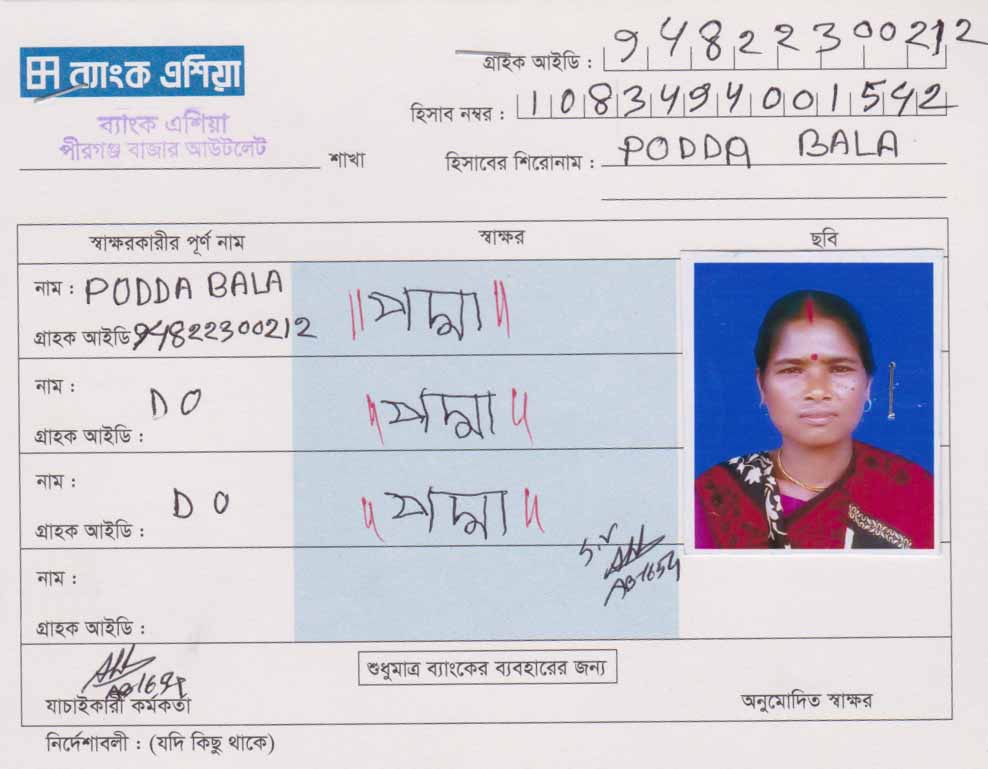 ব্যাংক এশিয়া
গ্রাহক আইডি : 94822300212
ব্যাংক এশিয়া
হিসাব নম্বর : 1083494001542
পীরগঞ্জ বাজার আউটলেট
শাখা
হিসাবের শিরোনাম : PODDA BALA
স্বাক্ষরকারীর পূর্ণ নাম স্বাক্ষর ছবি
নাম : PODDA BALA
পদ্মা
গ্রাহক আইডি 94822300212
নাম :
DO পদ্মা
গ্রাহক আইডি :
নাম :
DO পদ্মা
গ্রাহক আইডি :
নাম :
গ্রাহক আইডি :
শুধুমাত্র ব্যাংকের ব্যবহারের জন্য
যাচাইকারী কর্মকর্তা অনুমোদিত স্বাক্ষর
নির্দেশাবলী : (যদি কিছু থাকে)